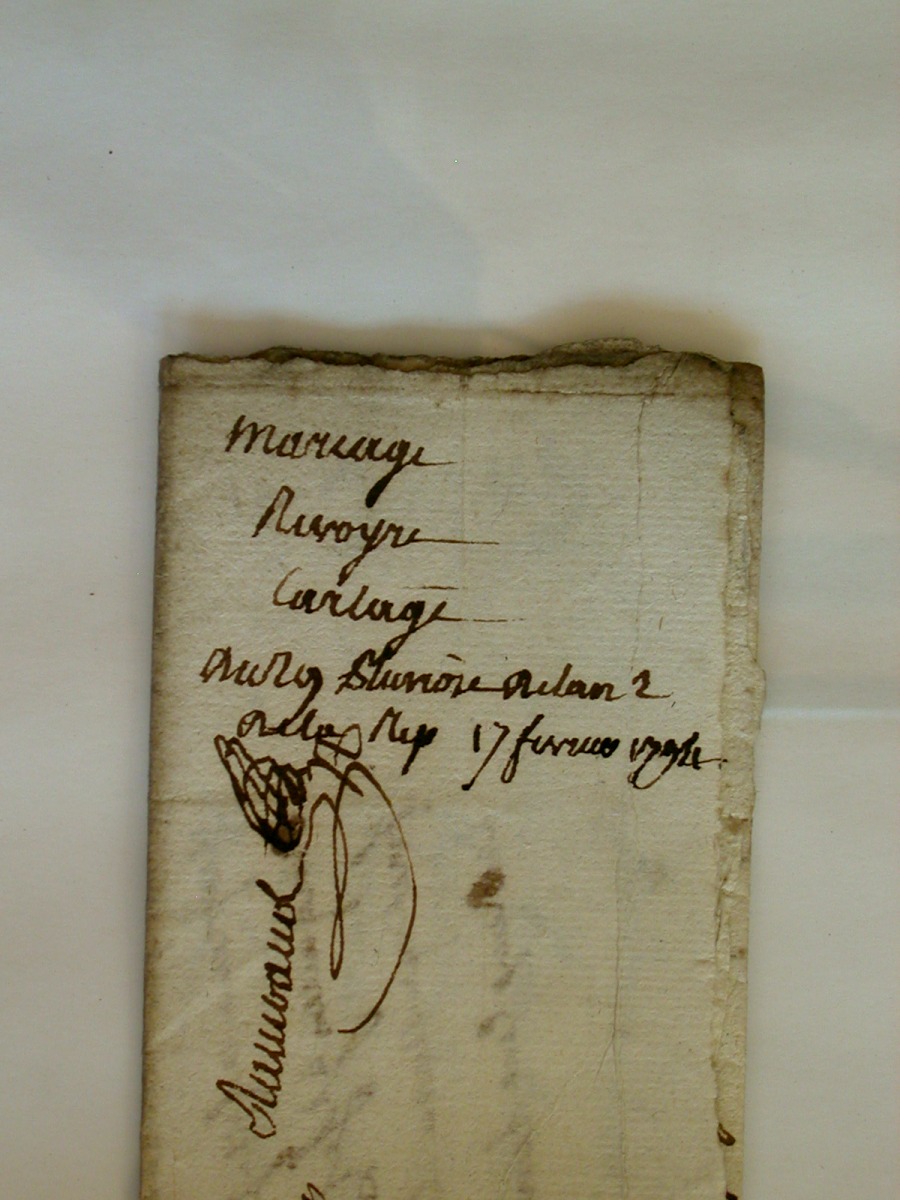 Mareage
Reuroyre
Cartage
du 29 pluviose de lan 2
de la Rep 17 fevrier 1794